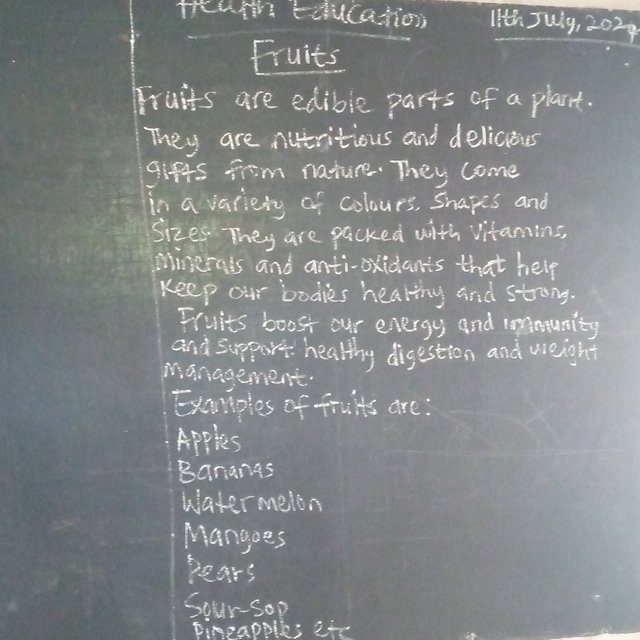 Health Education 11th July, 2024
Fruits
Fruits are edible parts of a plant.
They are nutritious and delicious
gifts from nature. They come
in a variety of colours, shapes and
Sizes. They are packed with vitamins,
minerals and anti-oxidants that help
keep our bodies healthy and strong.
Fruits boost our energy and immunity
and support healthy digestion and weight
management.
Examples of fruits are:
Apples
Bananas
Watermelon
Mangoes
Pears
Sour-Sop
Pineapples etc